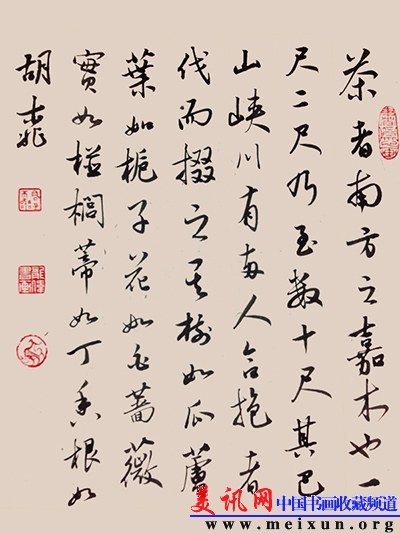 茶者南方之嘉木也一
尺二尺乃至数十尺其巴
山峡川有两人合抱者
伐而掇之其树如瓜蘆
葉如栀子花如白蔷薇
實如栟榈蒂如丁香根如
胡桃
美讯网 中国书画收藏频道
www.meixun.org